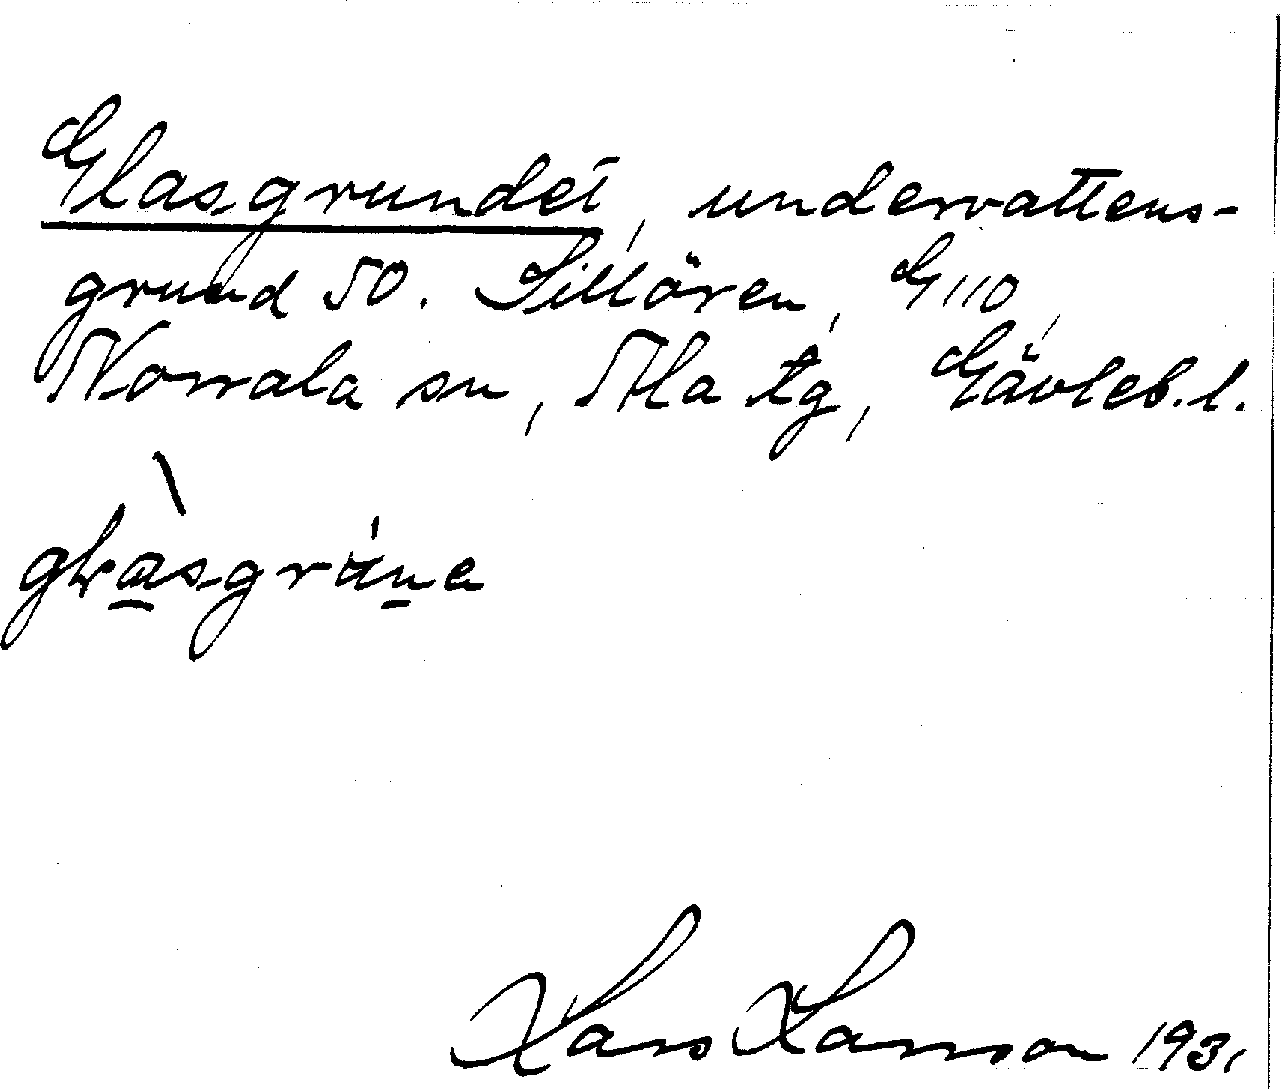 Glasgrundet, undervattens-
grund SO. Sillören, G 110,
Norrala sn, Ala tg, Gävleb. l.
glasgrúne
Lars Larsson 1931